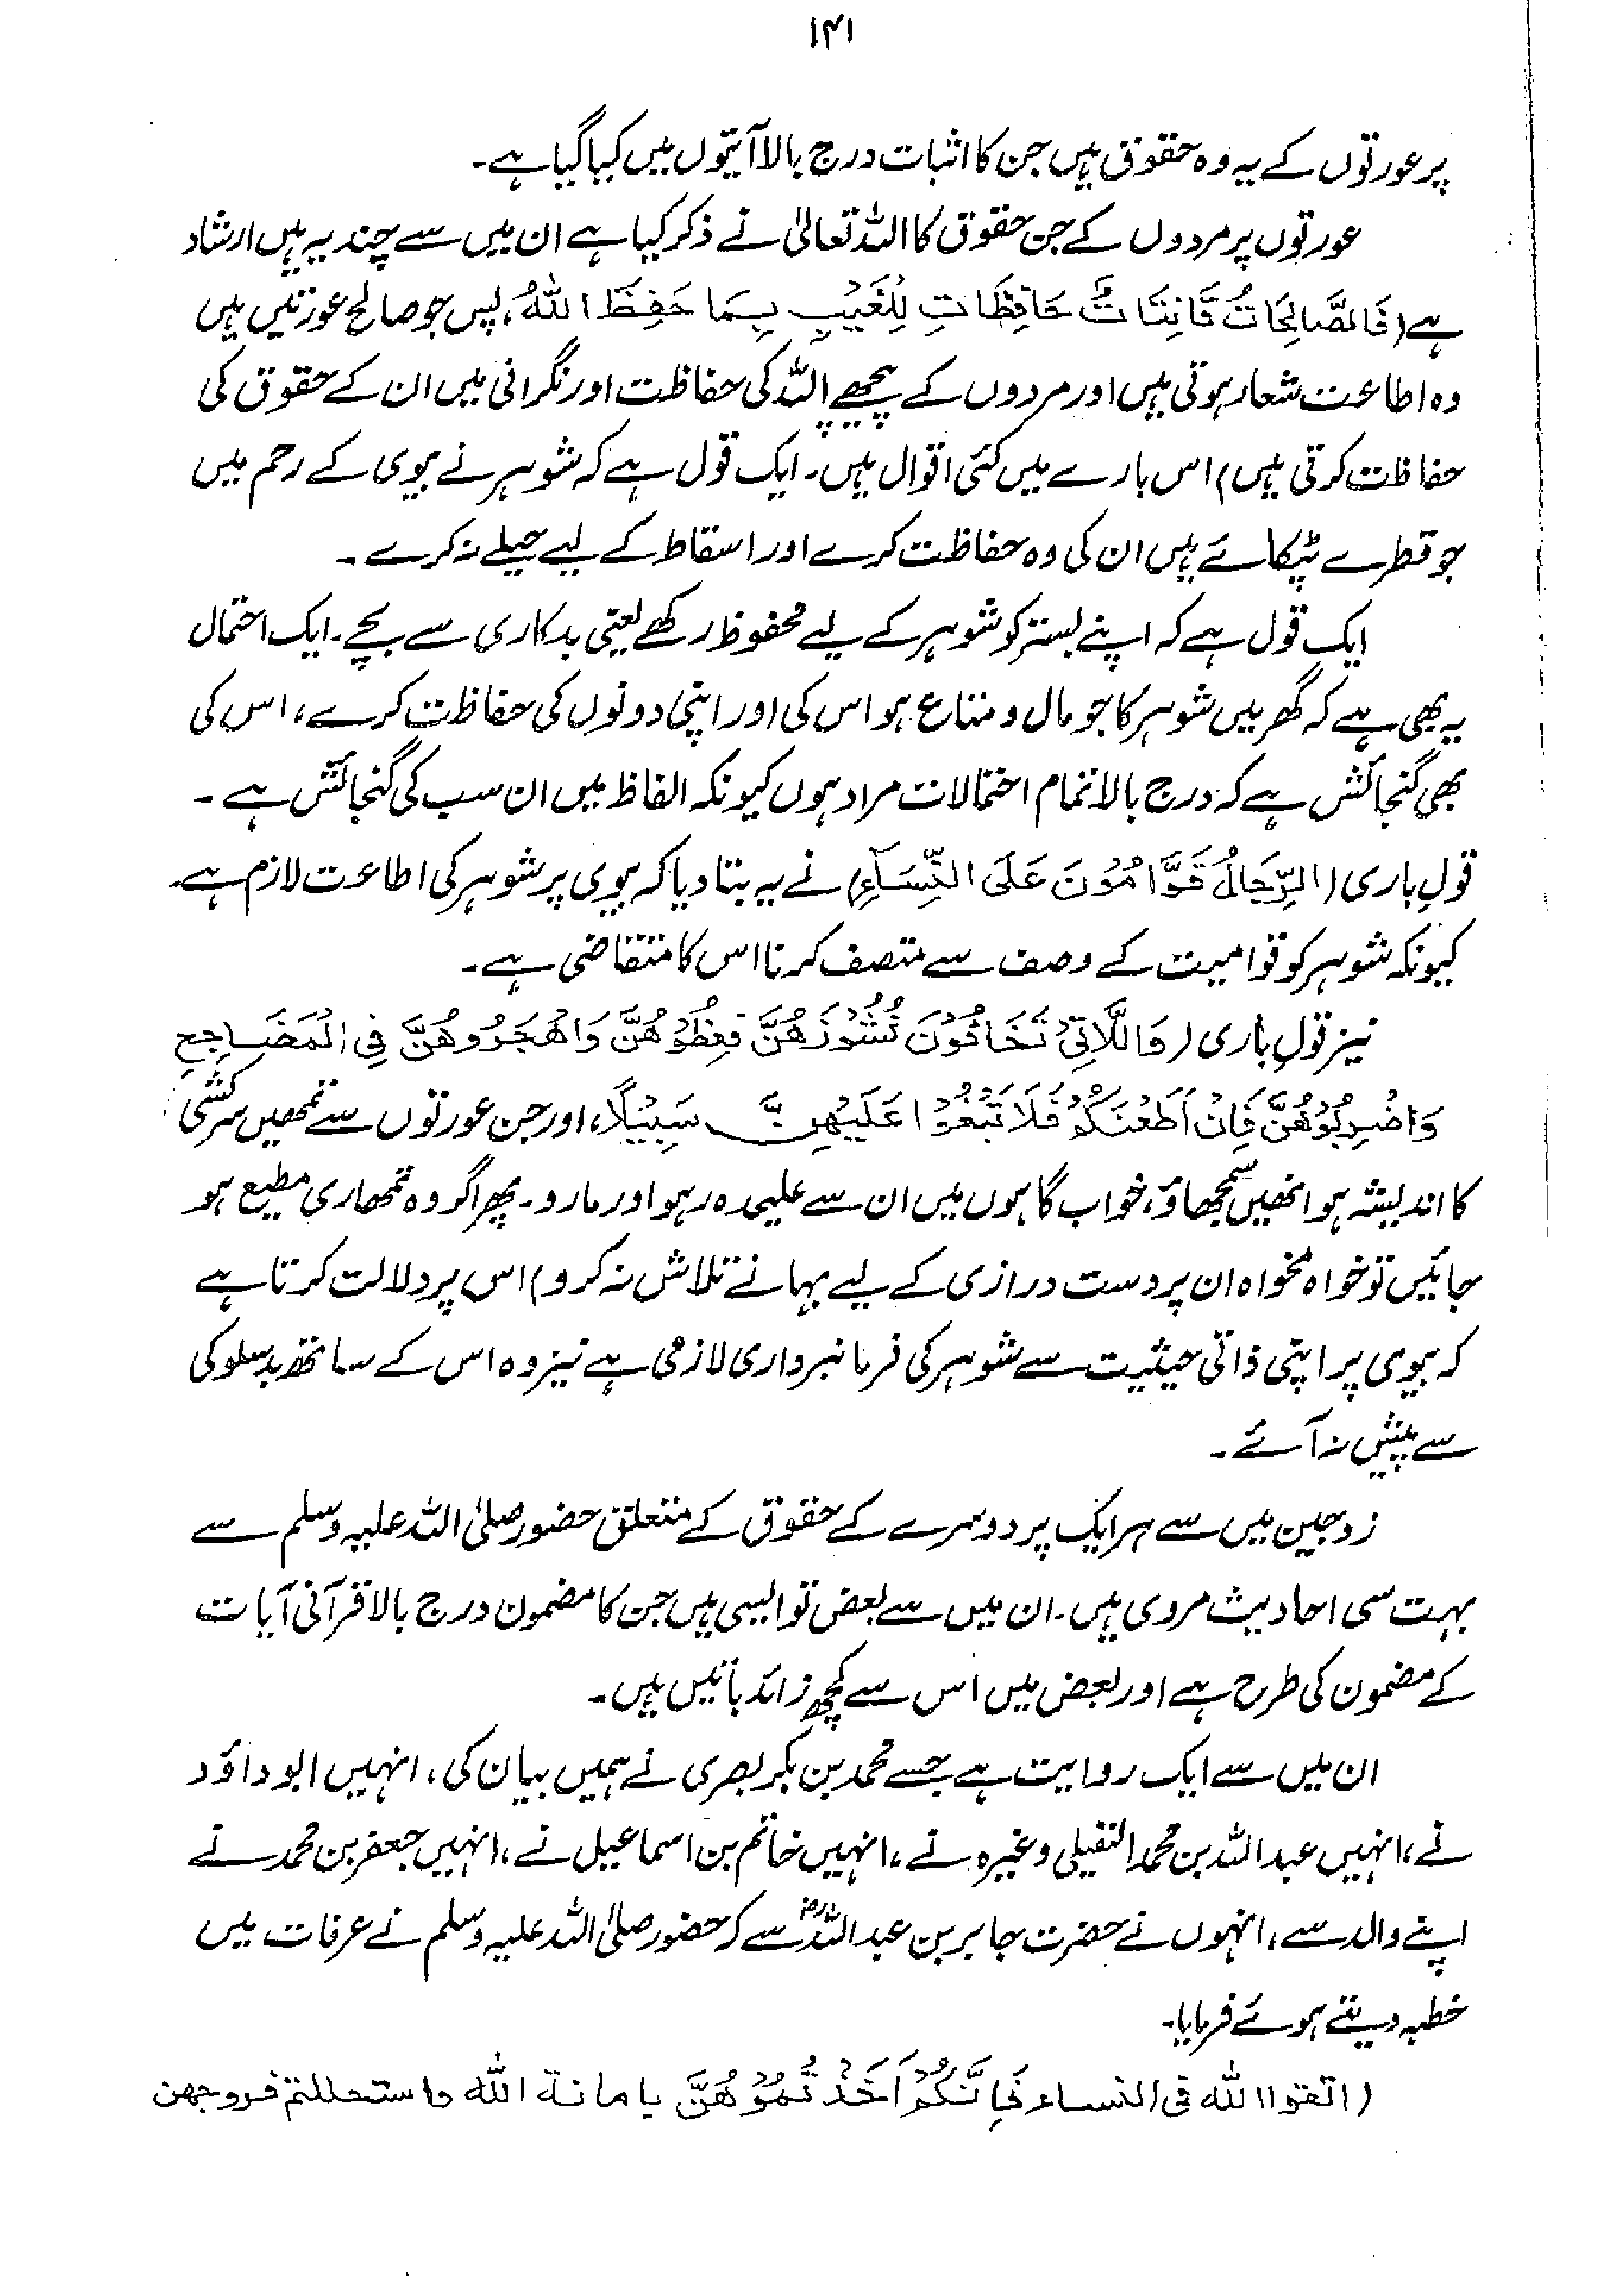 ۱۴۱
پر عورتوں کے یہ وہ حقوق ہیں جن کا اثبات درج بالا آیتوں میں کیا گیا ہے۔
عورتوں پر مردوں کے جن حقوق کا اللہ تعالیٰ نے ذکر کیا ہے ان میں سے چند یہ ہیں ارشاد
ہے (فَالصَّالِحَاتُ قَانِتَاتٌ حَافِظَاتٌ لِلْغَيْبِ بِمَا حَفِظَ اللهُ، پس جو صالح عورتیں ہیں
وہ اطاعت شعار ہوتی ہیں اور مردوں کے پیچھے اللہ کی حفاظت اور نگرانی میں ان کے حقوق کی
حفاظت کرتی ہیں) اس بارے میں کئی اقوال ہیں۔ ایک قول ہے کہ شوہر نے بیوی کے رحم میں
جو قطرے ٹپکائے ہیں ان کی وہ حفاظت کرے اور اسقاط کے لیے حیلے نہ کرے۔
ایک قول ہے کہ اپنے بستر کو شوہر کے لیے محفوظ رکھے یعنی بدکاری سے بچے۔ ایک احتمال
یہ بھی ہے کہ گھر میں شوہر کا جو مال و متاع ہو اس کی اور اپنی دونوں کی حفاظت کرے، اس کی
بھی گنجائش ہے کہ درج بالا تمام احتمالات مراد ہوں کیونکہ الفاظ میں ان سب کی گنجائش ہے۔
قولِ باری (الرِّجَالُ قَوَّامُوْنَ عَلَى النِّسَآءِ) نے یہ بتا دیا کہ بیوی پر شوہر کی اطاعت لازم ہے۔
کیونکہ شوہر کو قوامیت کے وصف سے متصف کرنا اس کا متقاضی ہے۔
نیز قولِ باری (وَاللَّاتِيْ تَخَافُوْنَ نُشُوْزَهُنَّ فَعِظُوْهُنَّ وَاهْجُرُوْهُنَّ فِي الْمَضَاجِعِ
وَاضْرِبُوْهُنَّ فَاِنْ اَطَعْنَكُمْ فَلَا تَبْغُوْا عَلَيْهِنَّ سَبِيْلًا، اور جن عورتوں سے تمھیں سرکشی
کا اندیشہ ہو انھیں سمجھاؤ، خواب گاہوں میں ان سے علیحدہ رہو اور مارو۔ پھر اگر وہ تمھاری مطیع ہو
جائیں تو خواہ مخواہ ان پر دست درازی کے لیے بہانے تلاش نہ کرو) اس پر دلالت کرتا ہے
کہ بیوی پر اپنی ذاتی حیثیت سے شوہر کی فرمانبرداری لازمی ہے نیز وہ اس کے ساتھ بدسلوکی
سے پیش نہ آئے۔
زوجین میں سے ہر ایک پر دوسرے کے حقوق کے متعلق حضور صلی اللہ علیہ وسلم سے
بہت سی احادیث مروی ہیں۔ ان میں سے بعض تو ایسی ہیں جن کا مضمون درج بالا قرآنی آیات
کے مضمون کی طرح ہے اور بعض میں اس سے کچھ زائد باتیں ہیں۔
ان میں سے ایک روایت ہے جسے محمد بن بکر بصری نے ہمیں بیان کی، انہیں ابو داؤد
نے، انہیں عبد اللہ بن محمد النفیلی وغیرہ نے، انہیں خاتم بن اسماعیل نے، انہیں جعفر بن محمد نے
اپنے والد سے، انہوں نے حضرت جابر بن عبد اللہؓ سے کہ حضور صلی اللہ علیہ وسلم نے عرفات میں
خطبہ دیتے ہوئے فرمایا۔
(اتقوا الله فى النساء فَاِنَّكُمْ اَخَذْتُمُوْهُنَّ بامانة الله واستحللتم فروجهن